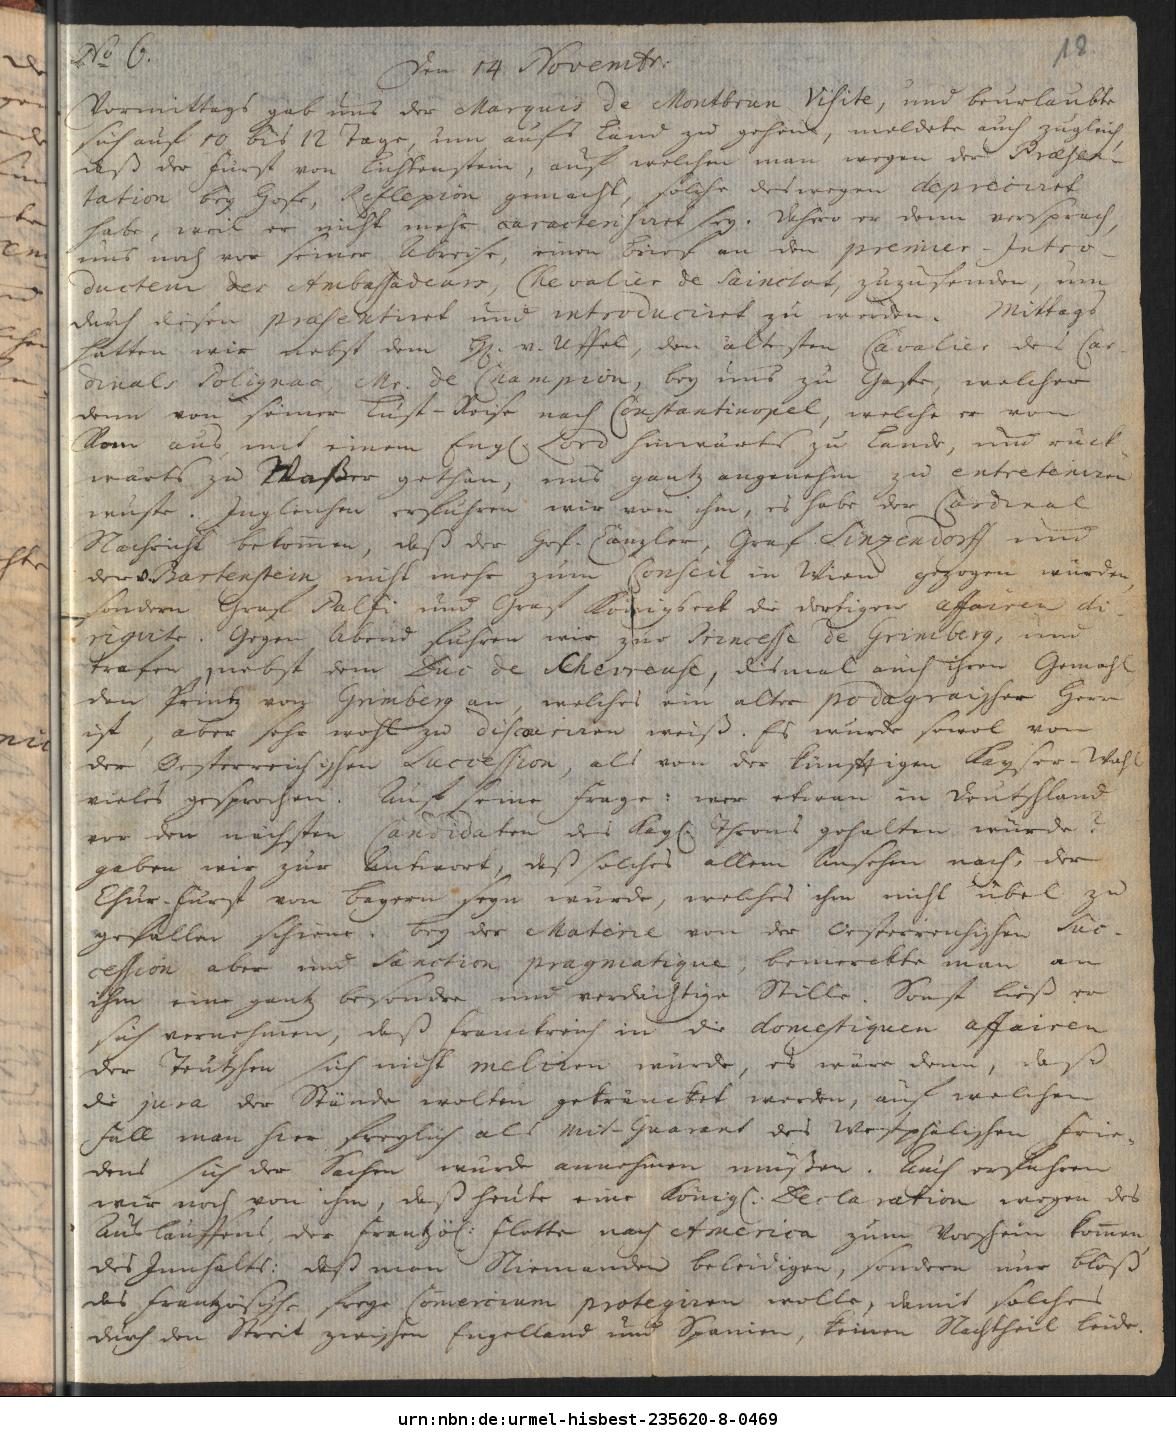 No 6.
18
Den 14 Novembr:
Vormittags gab uns der Marquis de Montbrun Visite, und beurlaubte
sich auf 10 bis 12 Tage, um aufs Land zu gehen, meldete auch zugleich,
daß der Fürst von Lichtenstein, auf welchen man wegen der Præsen-
tation bey Hofe, Reflexion gemacht, solche deswegen depreciret
habe, weil er nicht mehr caracterisiret sey. Dahero er denn versprach,
uns noch vor seiner Abreise, einen Brief an den premier-Intro-
ducteur des Ambassadeurs, Chevalier de Sainctot, zuzusenden, um
durch diesen præsentiret und introduciret zu werden. Mittags
hatten wir nebst dem H. v. Uffel, den ältesten Cavalier des Car-
dinals Polignac, Mr. de Champion, bey uns zu Gaste, welcher
denn von seiner Lust-Reise nach Constantinopel, welche er von
Rom aus, mit einem Engl. Lord hinwärts zu Lande, und rück
wärts zu Waßer gethan, uns gantz angenehm zu entreteniren
wuste. Ingleichen erfuhren wir von ihm, es habe der Cardinal
Nachricht bekom̄en, daß der Hof-Canzler, Graf Sinzendorff und
der v. Bartenstein nicht mehr zum Conseil in Wien gezogen würden,
sondern Graf Palfi und Graf Königseck die dortigen affairen di-
rigirte. Gegen Abend fuhren wir zur Princesse de Grimberg, und
trafen, nebst dem Duc de Chevreuse, dismal auch ihren Gemahl
den Printz von Grimberg an, welches ein alter podagraischer Herr
ist, aber sehr wohl zu discuriren weiß. Es wurde sowol von
der Oesterreichischen Succession, als von der künfftigen Kayser-Wahl
vieles gesprochen. Auf seine Frage: wer etwan in Deutschland
vor den nächsten Candidaten des Kayl. Throns gehalten würde?
gaben wir zur Antwort, daß solches allem Ansehen nach, der
Chur-Fürst von Bayern seyn würde, welches ihm nicht übel zu
gefallen schiene. Bey der Materie von der Oesterreichischen Suc-
cession aber und Sanction pragmatique, bemerckte man an
ihm eine gantz besondre und verdächtige Stille. Sonst ließ er
sich vernehmen, daß Franckreich in die domestiquen affairen
der Teutschen sich nicht meliren würde, es wäre denn, daß
die jura der Stände wolten gekräncket werden, auf welchen
Fall man hier freylich als mit-Guarant des Westphälischen Frie-
dens sich der Sachen würde annehmen müßen. Auch erfuhren
wir noch von ihm, daß heute eine Königl: Declaration wegen des
Auslauffens der Frantzös: Flotte nach America zum Vorschein kom̄en,
des Innhalts: daß man Niemanden beleidigen, sondern nur bloß
das Frantzösische freye Com̄ercium protegiren wolle, damit solches
durch den Streit zwischen Engelland und Spanien, keinen Nachtheil leide.
urn:nbn:de:urmel-hisbest-235620-8-0469